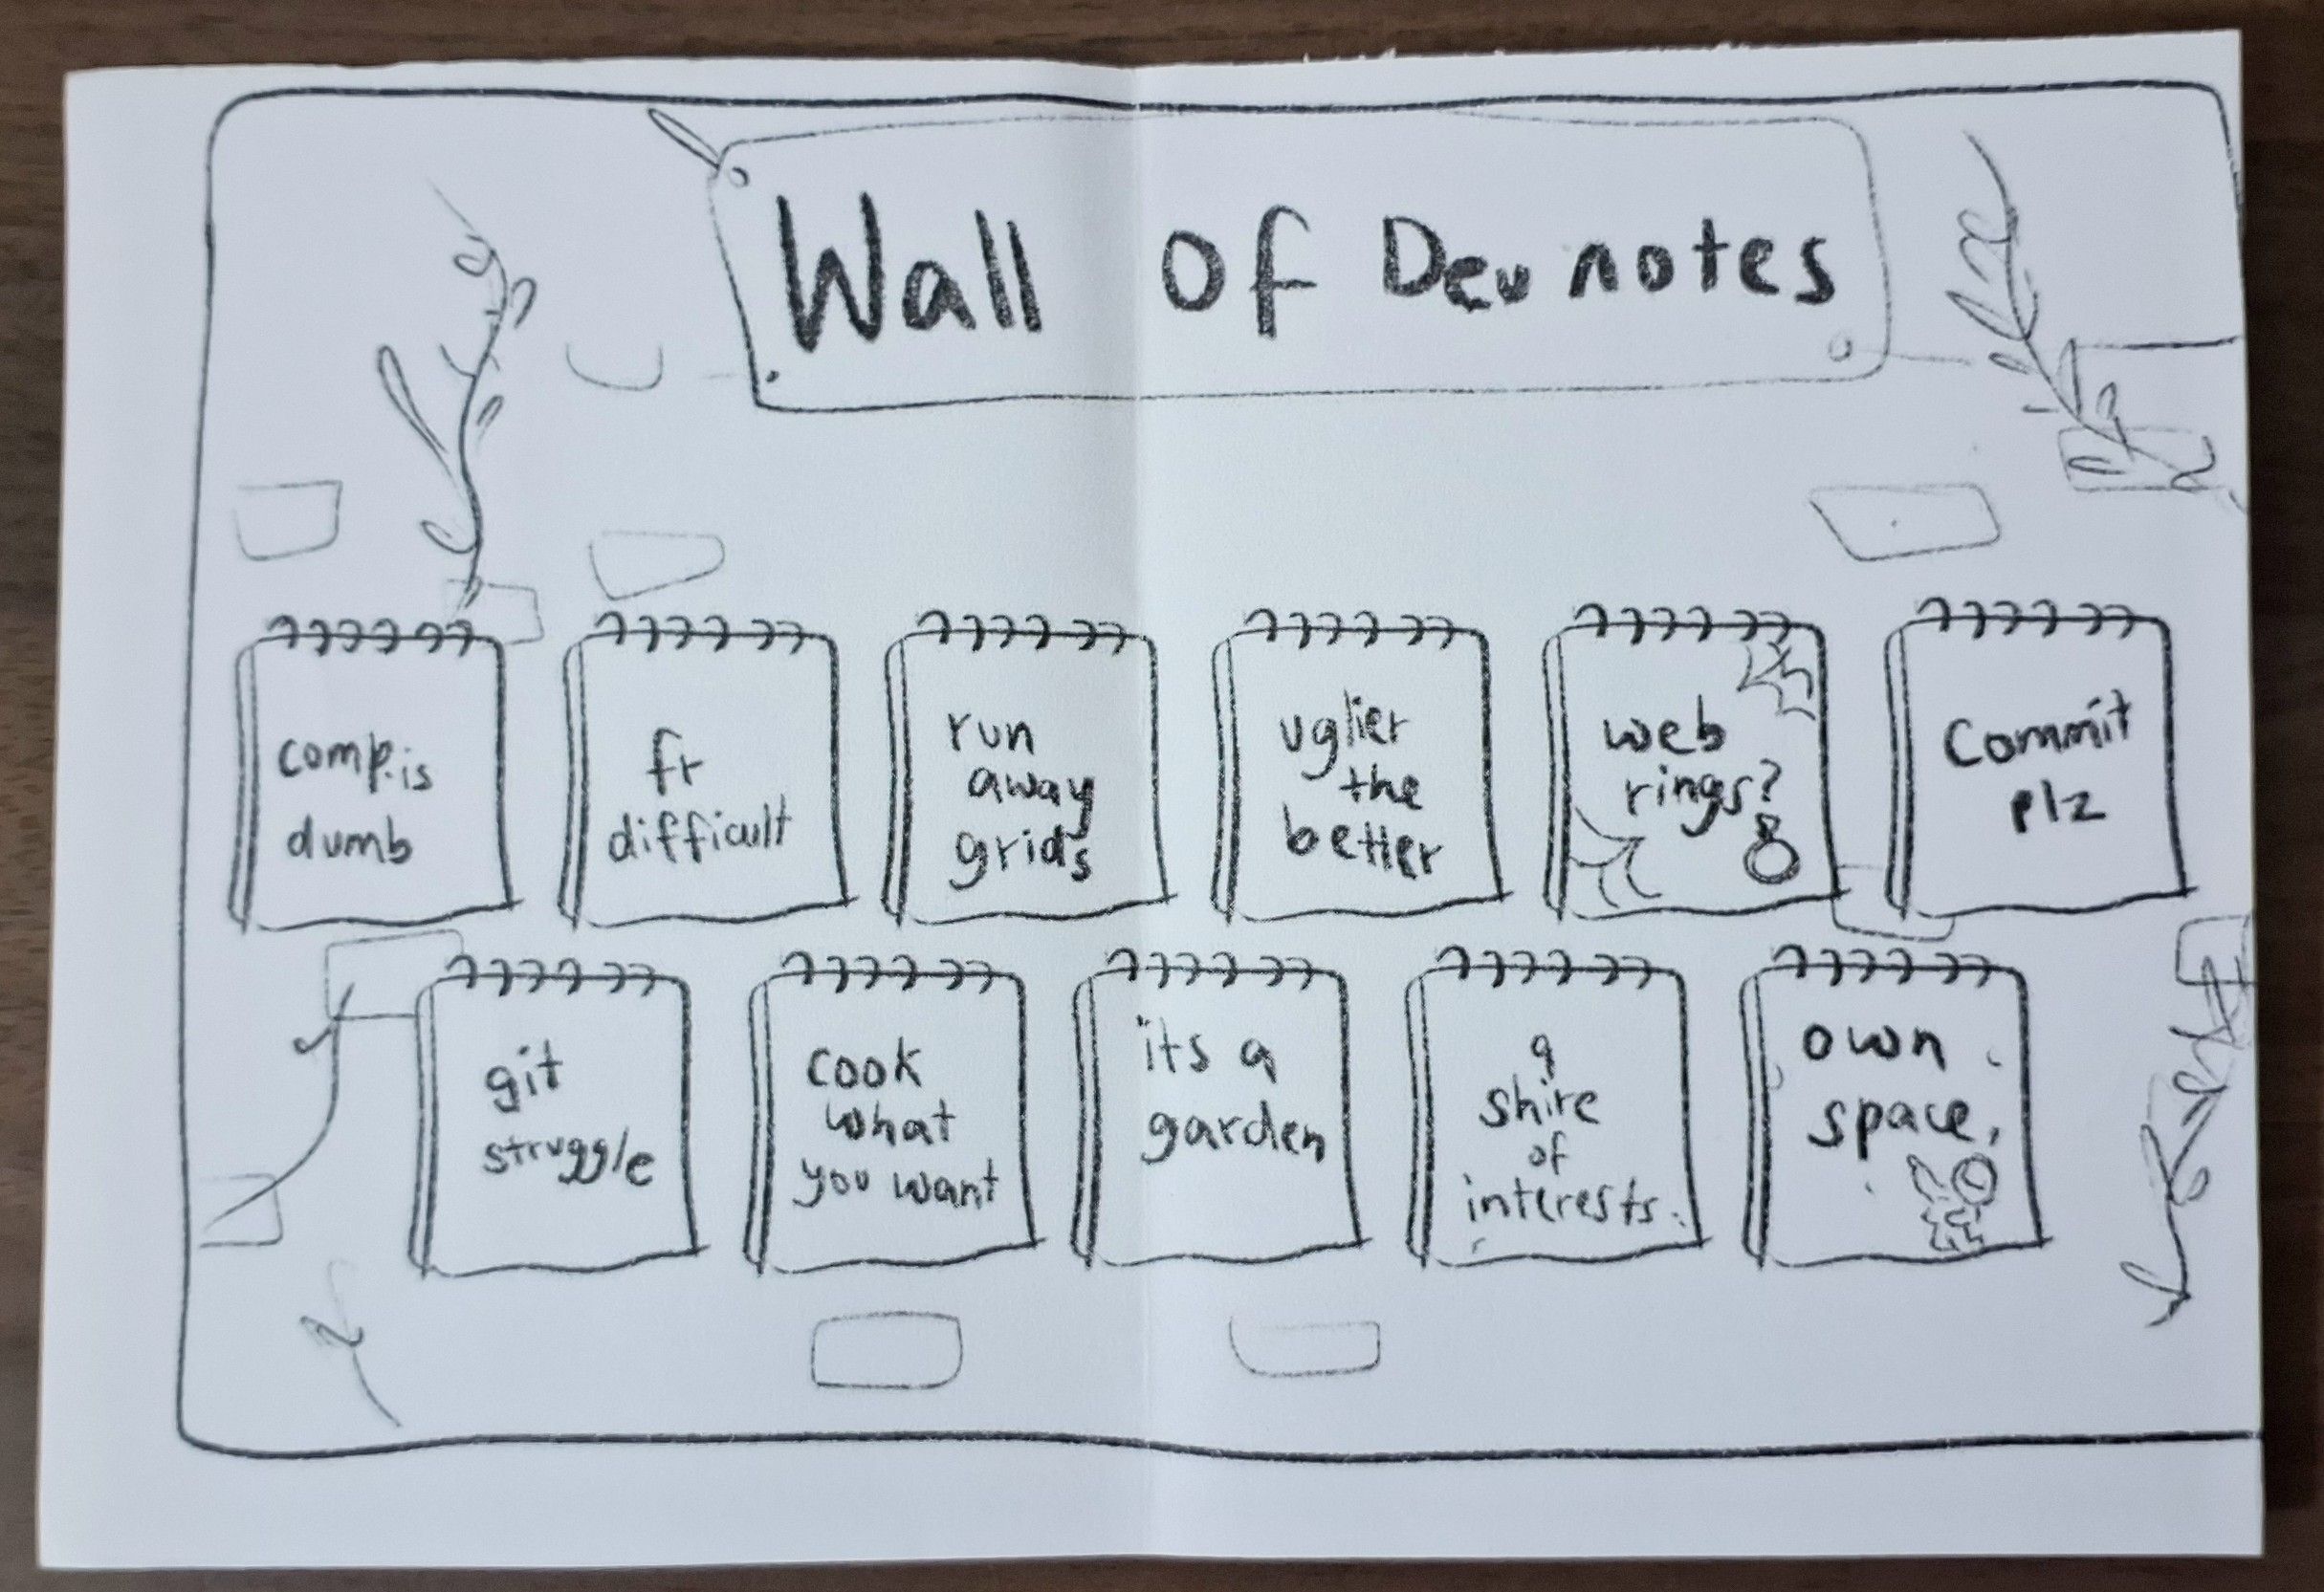 Wall Of Dev notes
comp. is
dumb
fr
difficult
run
away
grids
uglier
the
better
web
rings?
Commit
plz
git
struggle
cook
what
you want
its a
garden
a
shire
of
interests.
own
space.